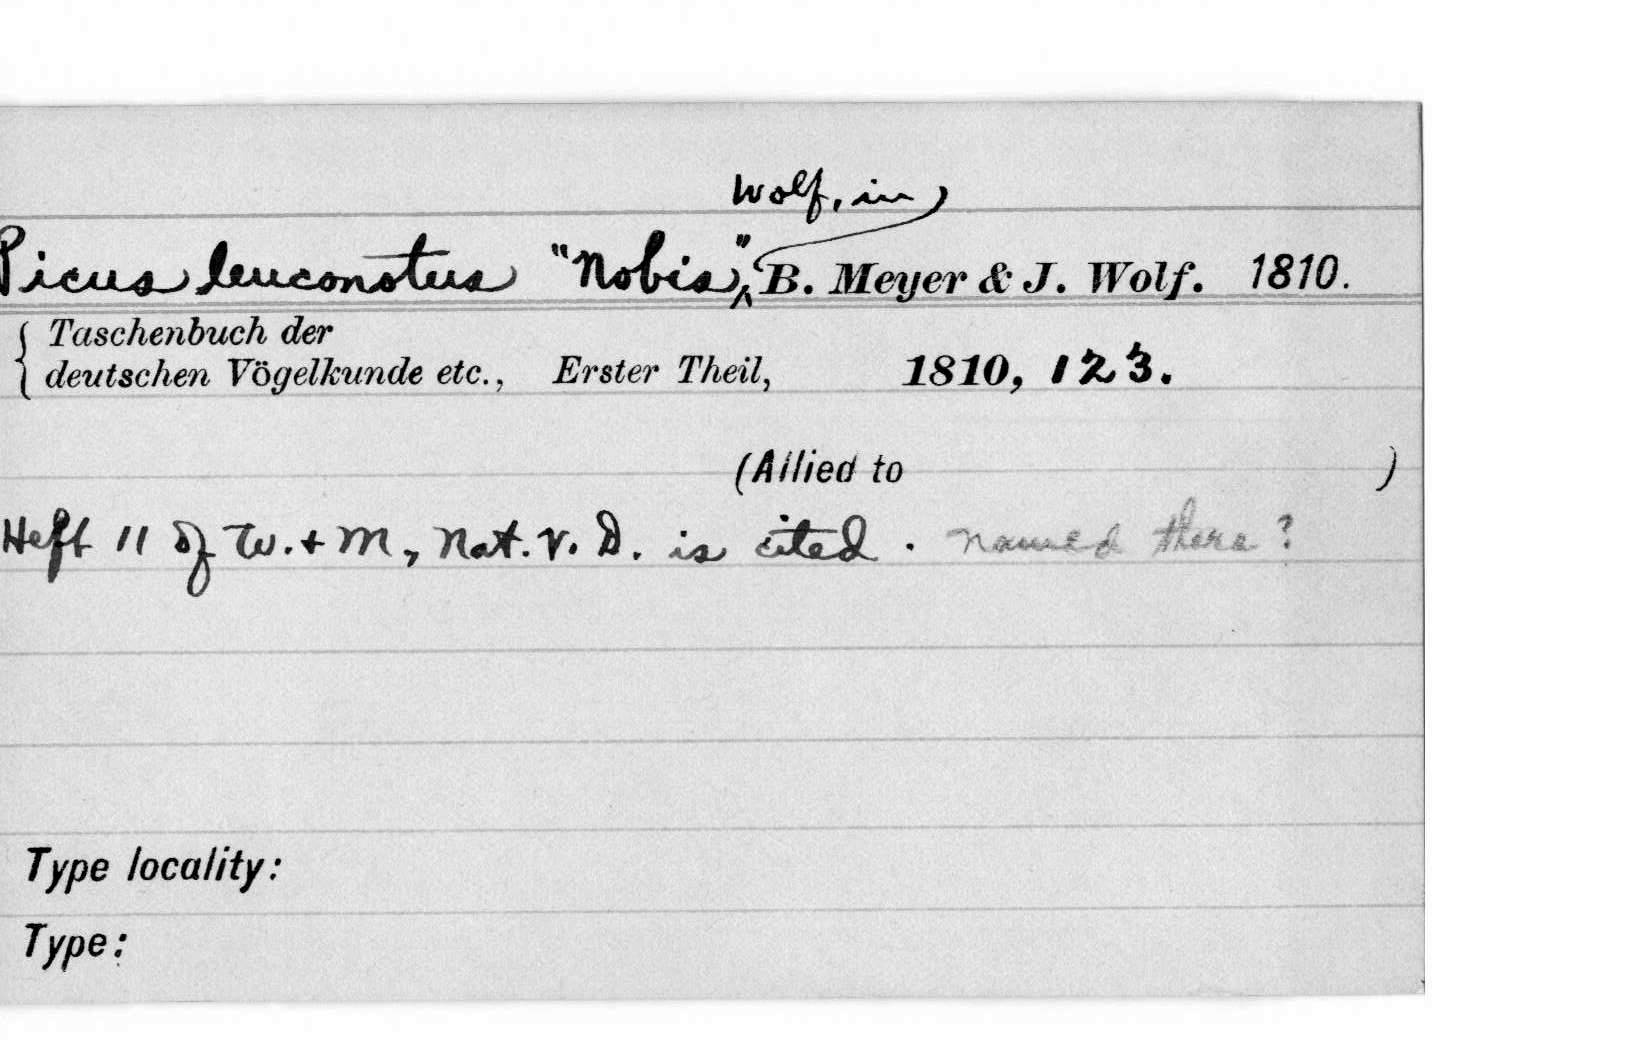 Wolf, in
Picus leuconotus "Nobis," B. Meyer & J. Wolf. 1810.
{ Taschenbuch der
deutschen Vögelkunde etc., Erster Theil, 1810, 123.
(Allied to )
Heft 11 of W. + M, Nat. V. D. is cited. named there?
Type locality:
Type: